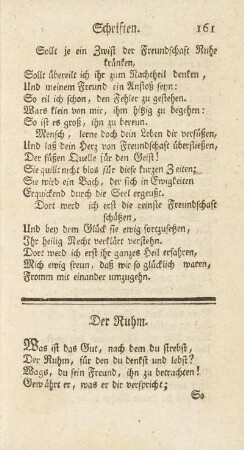 Schriften. 161
Sollt je ein Zwist der Freundschaft Ruhe
kränken,
Sollt übereilt ich ihr zum Nachtheil denken,
Und meinem Freund ein Anstoß seyn:
So eil ich schon, den Fehler zu gestehen.
Wars klein von mir, ihn hitzig zu begehen:
So ist es groß, ihn zu bereun.
Mensch, lerne doch dein Leben dir versüßen,
Und laß dein Herz von Freundschaft überfließen,
Der süßen Quelle für den Geist!
Sie quillt nicht blos für diese kurzen Zeiten;
Sie wird ein Bach, der sich in Ewigkeiten
Erquickend durch die Seel ergeußt.
Dort werd ich erst die reinste Freundschaft
schätzen,
Und bey dem Glück sie ewig fortzusetzen,
Ihr heilig Recht verklärt verstehn.
Dort werd ich erst ihr ganzes Heil erfahren,
Mich ewig freun, daß wir so glücklich waren,
Fromm mit einander umzugehn.
Der Ruhm.
Was ist das Gut, nach dem du strebst,
Der Ruhm, für den du denkst und lebst?
Wags, du sein Freund, ihn zu betrachten!
Gewährt er, was er dir verspricht;
So